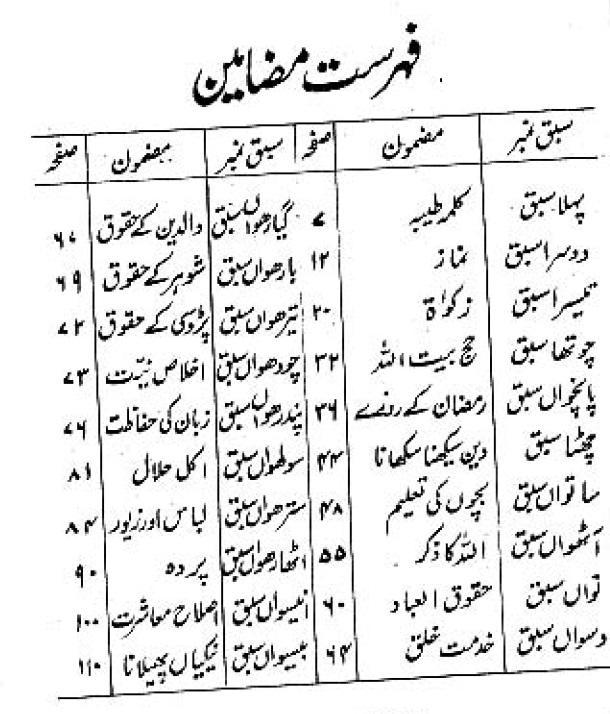 فہرست مضامین
سبق نمبر مضمون صفحہ سبق نمبر مضمون صفحہ
پہلا سبق کلمہ طیبہ ۷ گیارھواں سبق والدین کے حقوق ۶۷
دوسرا سبق نماز ۱۲ بارھواں سبق شوہر کے حقوق ۶۹
تیسرا سبق زکوٰۃ ۲۰ تیرھواں سبق پڑوسی کے حقوق ۷۲
چوتھا سبق حج بیت اللہ ۳۲ چودھواں سبق اخلاص نیّت ۷۳
پانچواں سبق رمضان کے روزے ۳۶ پندرھواں سبق زبان کی حفاظت ۷۶
چھٹا سبق دین سیکھنا سکھانا ۴۴ سولھواں سبق اکل حلال ۸۱
ساتواں سبق بچوں کی تعلیم ۴۸ سترھواں سبق لباس اور زیور ۸۴
آٹھواں سبق اللہ کا ذکر ۵۵ اٹھارھواں سبق پردہ ۹۰
نواں سبق حقوق العباد ۶۰ انیسواں سبق اصلاح معاشرت ۱۰۰
دسواں سبق خدمت خلق ۶۴ بیسواں سبق نیکیاں پھیلانا ۱۱۰